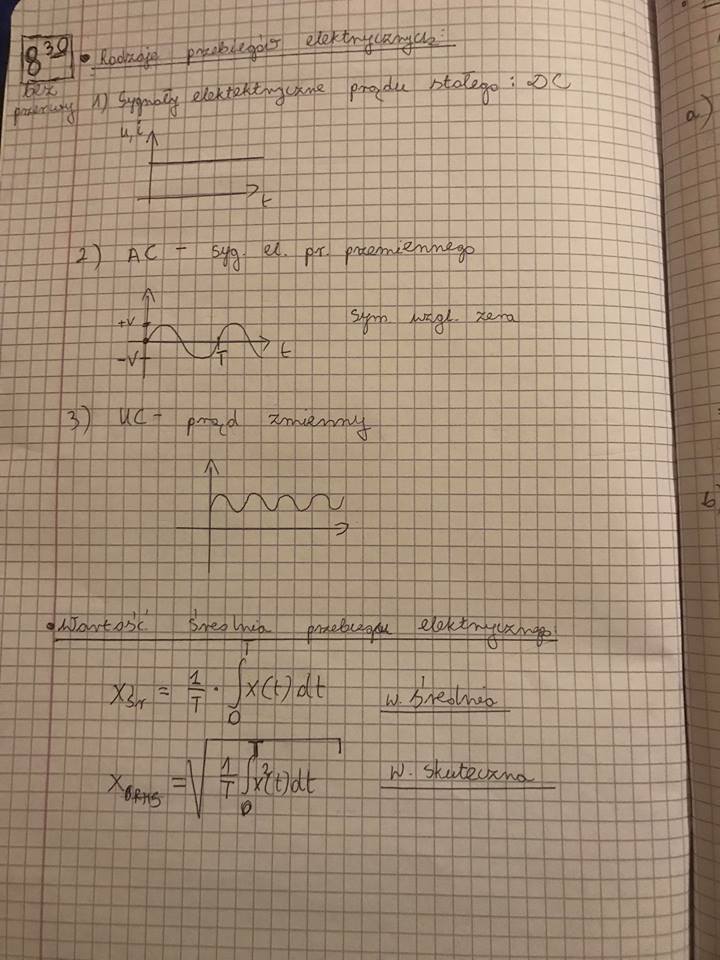 8³⁰ • Rodzaje przebiegów elektrycznych:
bez
przerwy 1) Sygnały elektektryczne prądu stałego: DC
u, i
t
2) AC - syg. el. pr. przemiennego
+V
-V
T
t
sym. wzgl. zera
3) UC - prąd zmienny
• Wartość średnia przebiegu elektrycznego:
Xśr = 1/T · ∫₀ᵀ x(t) dt w. średnia
= √(1/T ∫₀ᵀ x²(t) dt) w. skuteczna
a)
b)